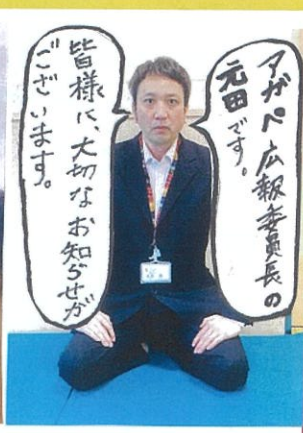 アガペ広報委員長の
元田です。
皆様に、大切なお知らせが
ございます。